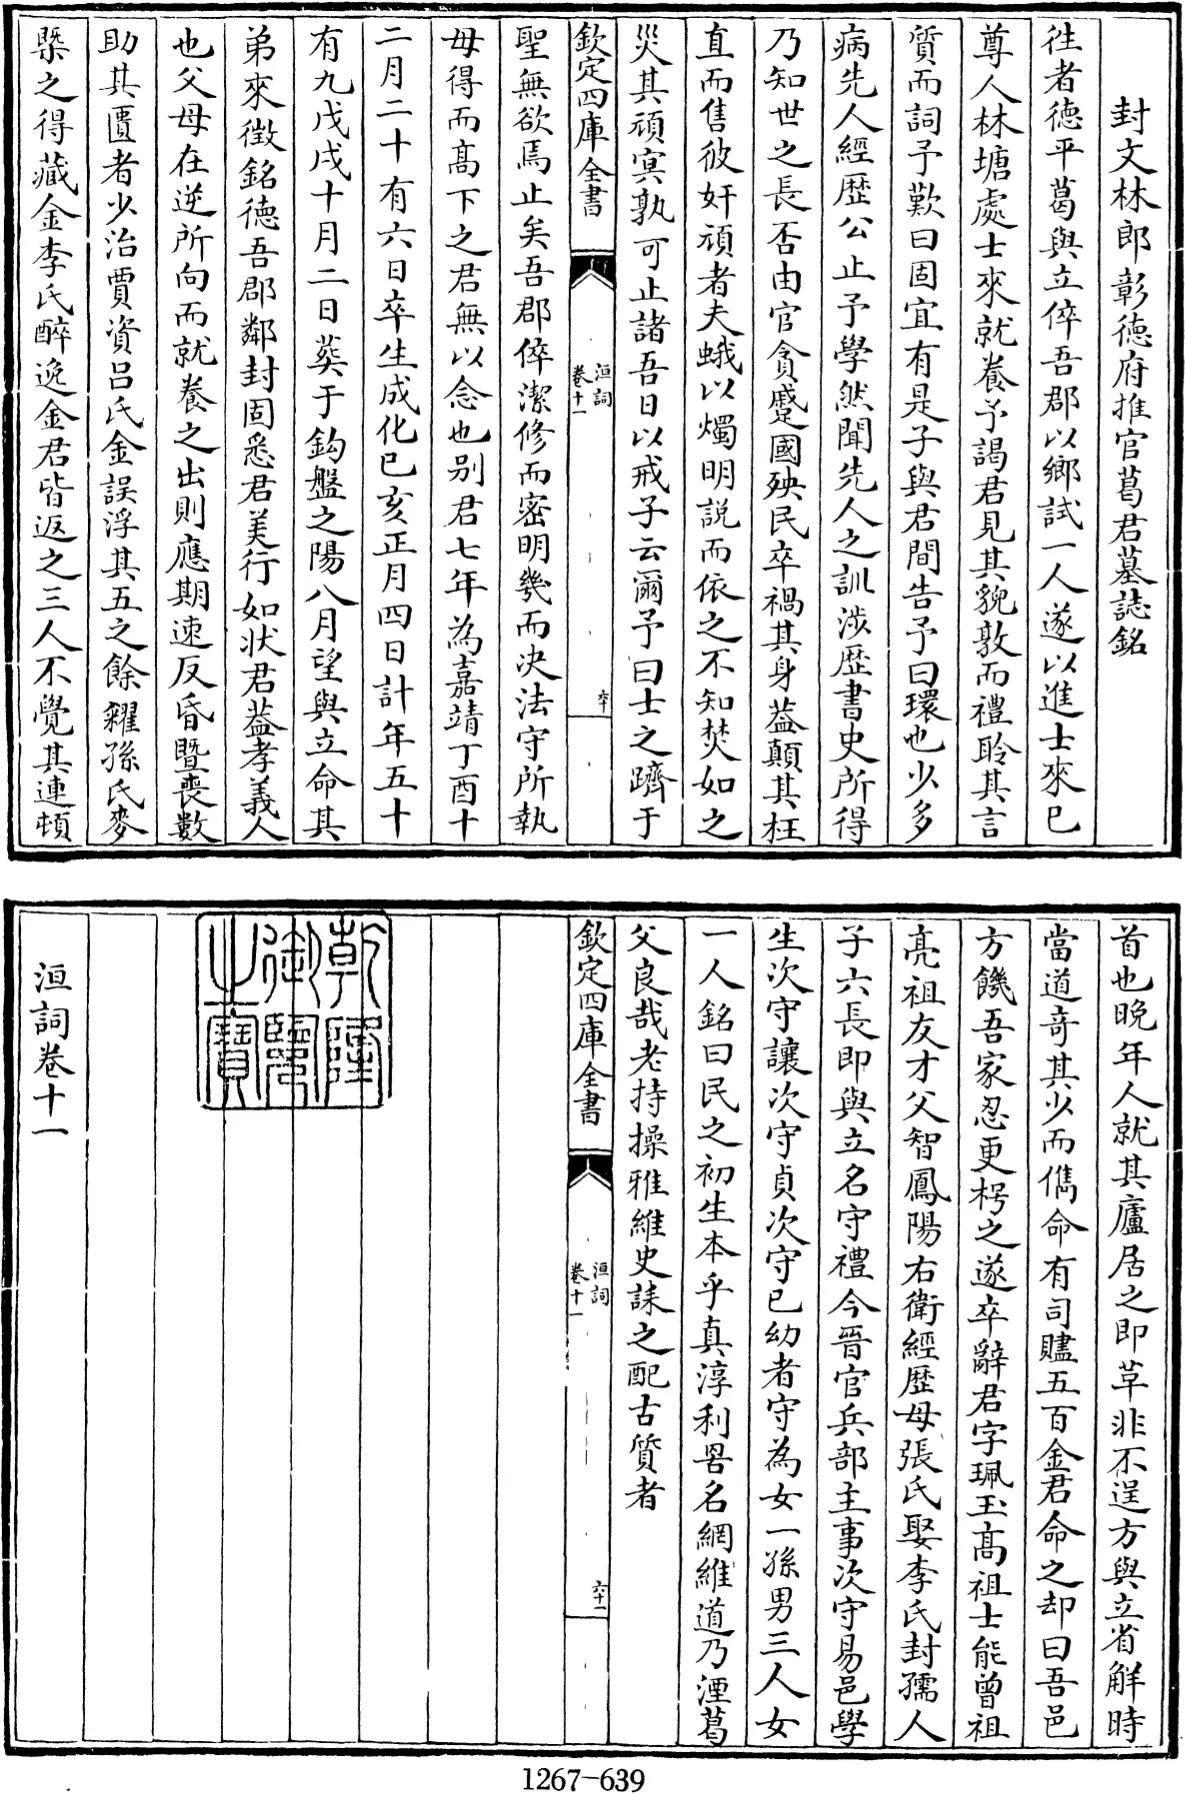 封文林郎彰徳府推官葛君墓誌銘
往者徳平葛與立倅吾郡以鄉試一人遂以進士來已
尊人林塘處士來就養予謁君見其貌敦而禮聆其言
質而詞予歎曰固宜有是子與君間告予曰環也少多
病先人經歴公止予學然聞先人之訓涉歴書史所得
乃知世之長否由官貪蹙國殃民卒禍其身葢顛其枉
直而售彼奸頑者夫蛾以燭明説而依之不知焚如之
災其頑㝠孰可止諸吾日以戒子云爾予曰士之躋于
欽定四庫全書
洹詞
卷十一
六十
聖無欲焉止矣吾郡倅潔修而密明幾而决法守所執
母得而髙下之君無以念也别君七年為嘉靖丁酉十
二月二十有六日卒生成化已亥正月四日計年五十
有九戊戌十月二日葬于鈎盤之陽八月望與立命其
弟來徴銘徳吾郡鄰封固悉君美行如状君葢孝義人
也父母在逆所向而就養之出則應期速反昏暨喪數
助其匱者少治賈資吕氏金誤浮其五之餘糴孫氏麥
槩之得藏金李氏醉逸金君皆返之三人不覺其連頓
首也晩年人就其廬居之即草非不逞方與立省解時
當道竒其少而儁命有司贐五百金君命之却曰吾邑
方饑吾家忍更枵之遂卒辭君字珮玉髙祖士能曾祖
亮祖友才父智鳳陽右衛經歴母張氏娶李氏封孺人
子六長即與立名守禮今晉官兵部主事次守易邑學
生次守讓次守貞次守已幼者守為女一孫男三人女
一人銘曰民之初生本乎真淳利畧名網維道乃湮葛
父良哉老持操雅維史誄之配古質者
欽定四庫全書
洹詞
卷十一
六十一
乾隆御覽之寶
洹詞卷十一
1267-639